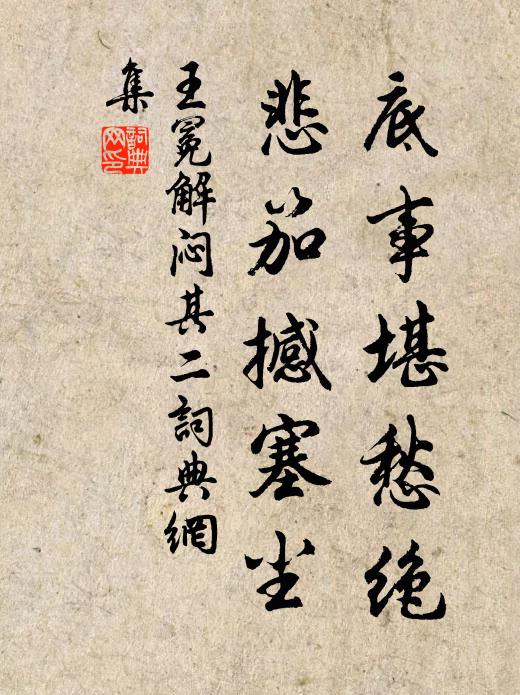 底事堪愁绝
悲笳撼塞尘
王冕解闷其二詞典網
集
詞典网印